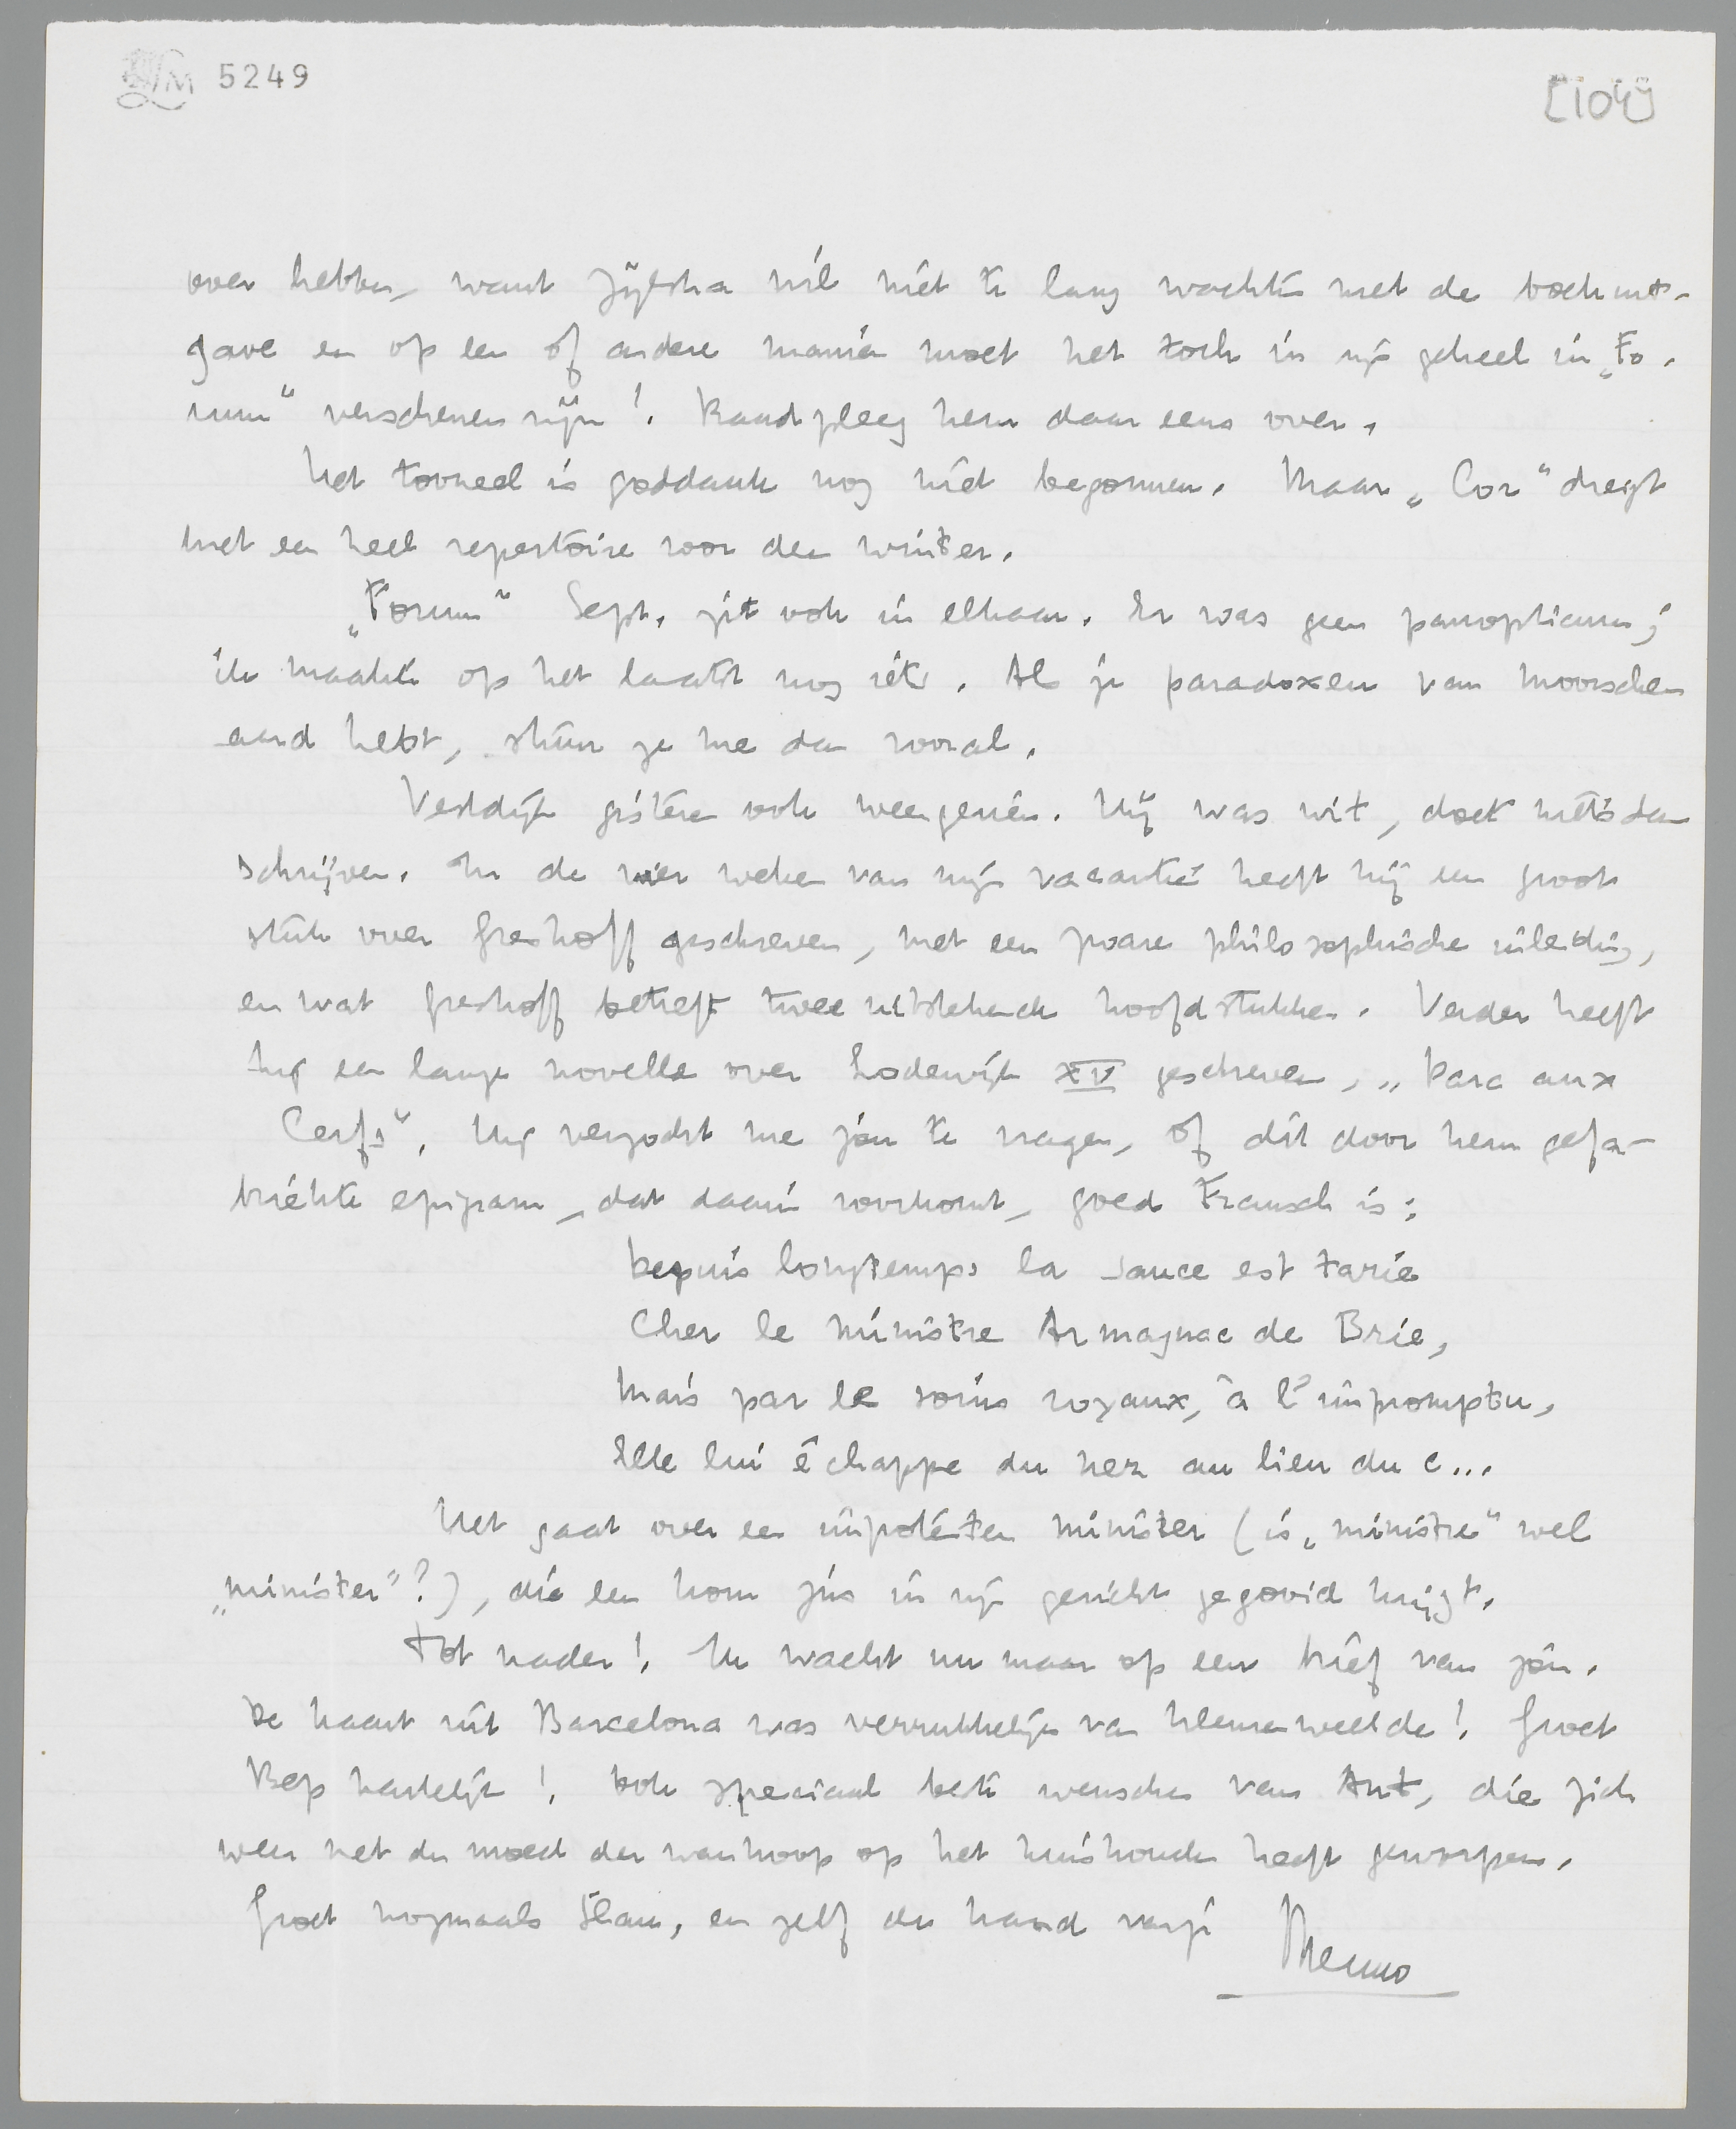 LM 5249
[104]
over hebben, want Zijlstra wil niet te lang wachten met de boekuit-
gave en op een of andere manier moet het toch in zijn geheel in „Fo-
rum” verschenen zijn! Raadpleeg hem daar eens over.
Het tooneel is goddank nog niet begonnen. Maar „Cor” dreigt
met een heel repertoire voor den winter.
„Forum” Sept. zit ook in elkaar. Er was geen panopticum;
ik maakte op het laatst nog iets. Als je paradoxen van moorschen
aard hebt, stuur ze me dan vooral.
Vestdijk gisteren ook weergezien. Hij was wit, doet niets dan
schrijven. In de vier weken van mijn vacantie heeft hij een groot
stuk over Greshoff geschreven, met een zware philosophische inleiding,
en wat Greshoff betreft twee uitstekende hoofdstukken. Verder heeft
hij een lange novelle over Lodewijk XV geschreven, „Parc aux
Cerfs”. Hij verzocht me jou te vragen, of dit door hem gefa-
briekte epigram, dat daarin voorkomt, goed Fransch is:
Depuis longtemps la sauce est tarie
Cher le ministre Armagnac de Brie,
Mais par le soins royaux, à l'impromptu,
Elle lui échappe du nez au lieu du c...
Het gaat over een impotenten minister (is „ministre” wel
„minister”?), die een kom jus in zijn gezicht gegooid krijgt.
Tot nader! Ik wacht nu maar op een brief van jou.
De kaart uit Barcelona was verrukkelijk van kleurenweelde! Groet
Bep hartelijk! Ook speciaal beste wenschen van Ant, die zich
weer met den moed der wanhoop op het huishouden heeft geworpen.
Groet nogmaals Sam, en zelf de hand van je
Menno